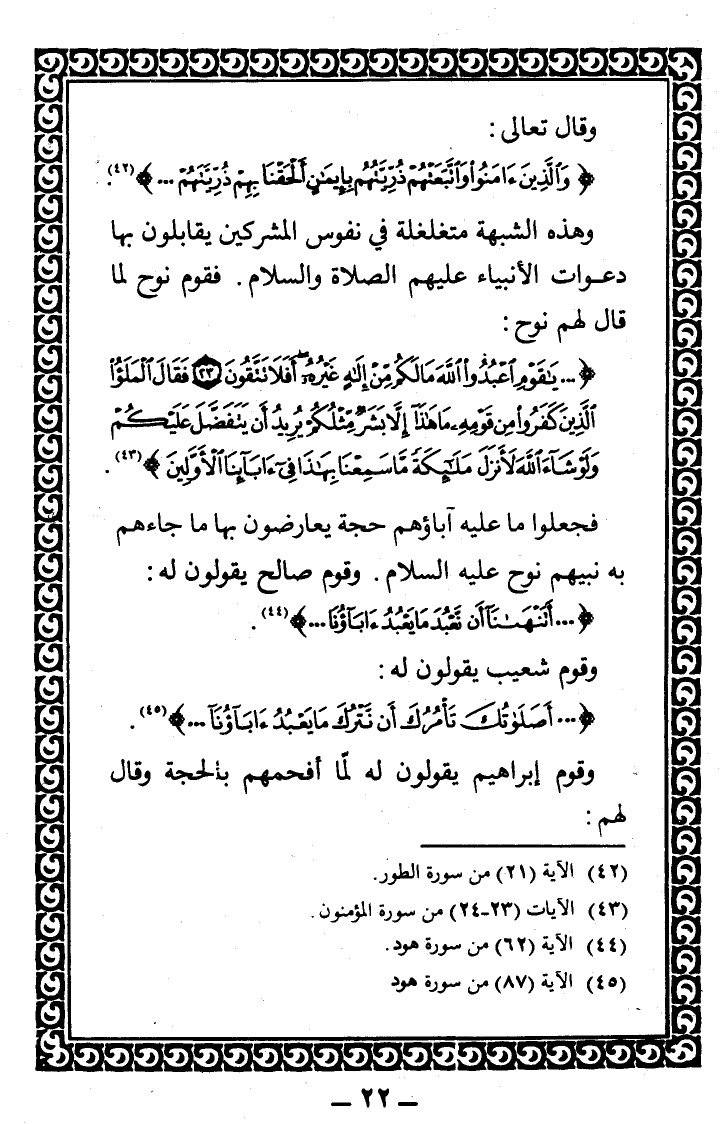 وقال تعالى :
﴿ وَٱلَّذِينَ ءَامَنُوا۟ وَٱتَّبَعَتْهُمْ ذُرِّيَّتُهُم بِإِيمَٰنٍ أَلْحَقْنَا بِهِمْ ذُرِّيَّتَهُمْ ... ﴾(٤٢).
وهذه الشبهة متغلغلة في نفوس المشركين يقابلون بها
دعوات الأنبياء عليهم الصلاة والسلام . فقوم نوح لما
قال لهم نوح :
﴿ ... يَٰقَوْمِ ٱعْبُدُوا۟ ٱللَّهَ مَا لَكُم مِّنْ إِلَٰهٍ غَيْرُهُۥٓ أَفَلَا تَتَّقُونَ ٢٣ فَقَالَ ٱلْمَلَؤُا۟
ٱلَّذِينَ كَفَرُوا۟ مِن قَوْمِهِۦ مَا هَٰذَآ إِلَّا بَشَرٌ مِّثْلُكُمْ يُرِيدُ أَن يَتَفَضَّلَ عَلَيْكُمْ
وَلَوْ شَآءَ ٱللَّهُ لَأَنزَلَ مَلَٰٓئِكَةً مَّا سَمِعْنَا بِهَٰذَا فِىٓ ءَابَآئِنَا ٱلْأَوَّلِينَ ﴾(٤٣) .
فجعلوا ما عليه آباؤهم حجة يعارضون بها ما جاءهم
به نبيهم نوح عليه السلام . وقوم صالح يقولون له :
﴿ ... أَتَنْهَىٰنَآ أَن نَّعْبُدَ مَا يَعْبُدُ ءَابَآؤُنَا ... ﴾(٤٤) .
وقوم شعيب يقولون له :
﴿ ... أَصَلَوٰتُكَ تَأْمُرُكَ أَن نَّتْرُكَ مَا يَعْبُدُ ءَابَآؤُنَآ ... ﴾(٤٥) .
وقوم إبراهيم يقولون له لمّا أفحمهم بالحجة وقال
لهم :
(٤٢) الآية (٢١) من سورة الطور .
(٤٣) الآيات (٢٣-٢٤) من سورة المؤمنون .
(٤٤) الآية (٦٢) من سورة هود .
(٤٥) الآية (٨٧) من سورة هود
– ٢٢ –